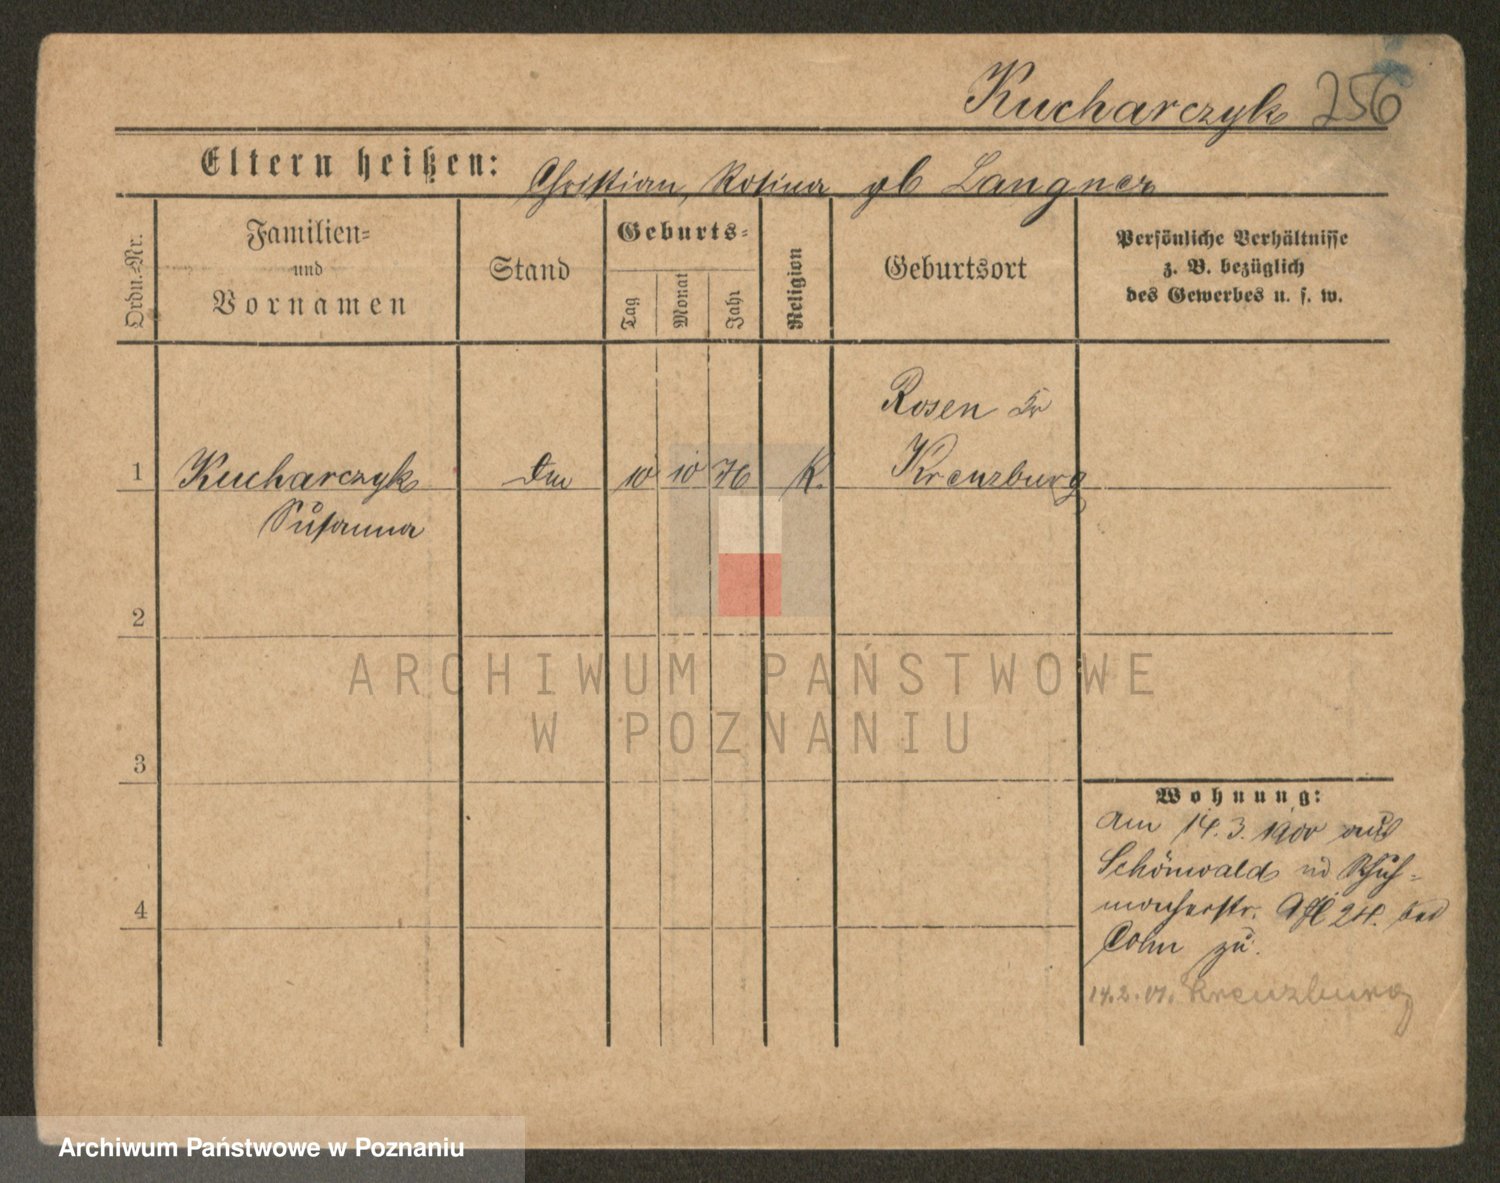 Kucharczyk 256
Eltern heißen: Christian, Rosina gb Langner
Ordn.-Nr.
Familien-
und
Vornamen
Stand
Geburts-
Tag
Monat
Jahr
Religion
Geburtsort
Persönliche Verhältnisse
z. B. bezüglich
des Gewerbes u. s. w.
Rosen Kr
1 Kucharczyk 10 10 76 K. Kreuzburg
Susanna
2
ARCHIWUM PAŃSTWOWE
W POZNANIU
3
Wohnung:
am 14.3.1900 aus
Schönwald Schuh-
macherstr. 24. bei
Cohn zu.
4
14.2.01. Kreuzburg
Archiwum Państwowe w Poznaniu